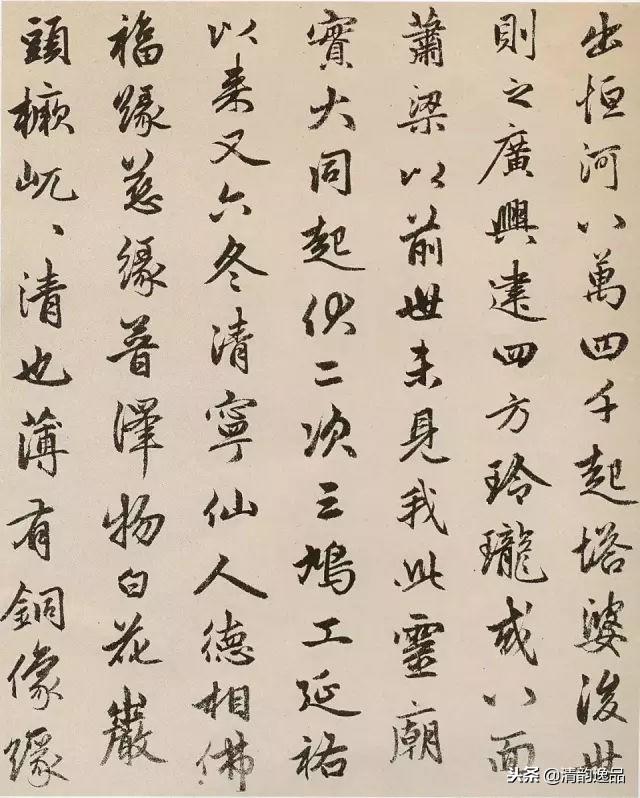 出恒河八萬四千起塔婆後世
則之廣興建四方玲瓏或八面
蕭梁以前世未見我此靈廟
寶大同起伏二次三鳩工延祐
以来又六冬清寧仙人德相佛
福緣慈緣普澤物白花巖
頭橛屼、清也薄有銅像緣
头条 @清韵逸品